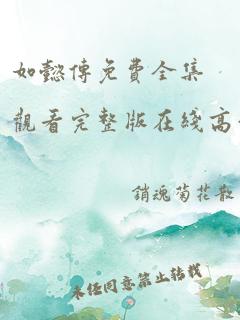 如懿傳免費全集
觀看完整版在綫高
銷魂菊花散
未经同意禁止转载